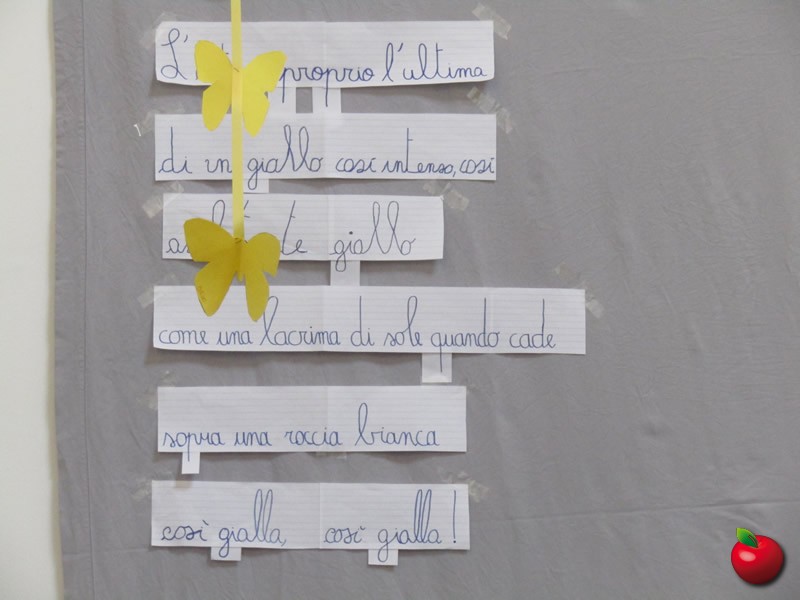 proprio l'ultima
di un giallo così intenso, così
giallo
come una lacrima di sole quando cade
sopra una roccia bianca
così gialla, così gialla!